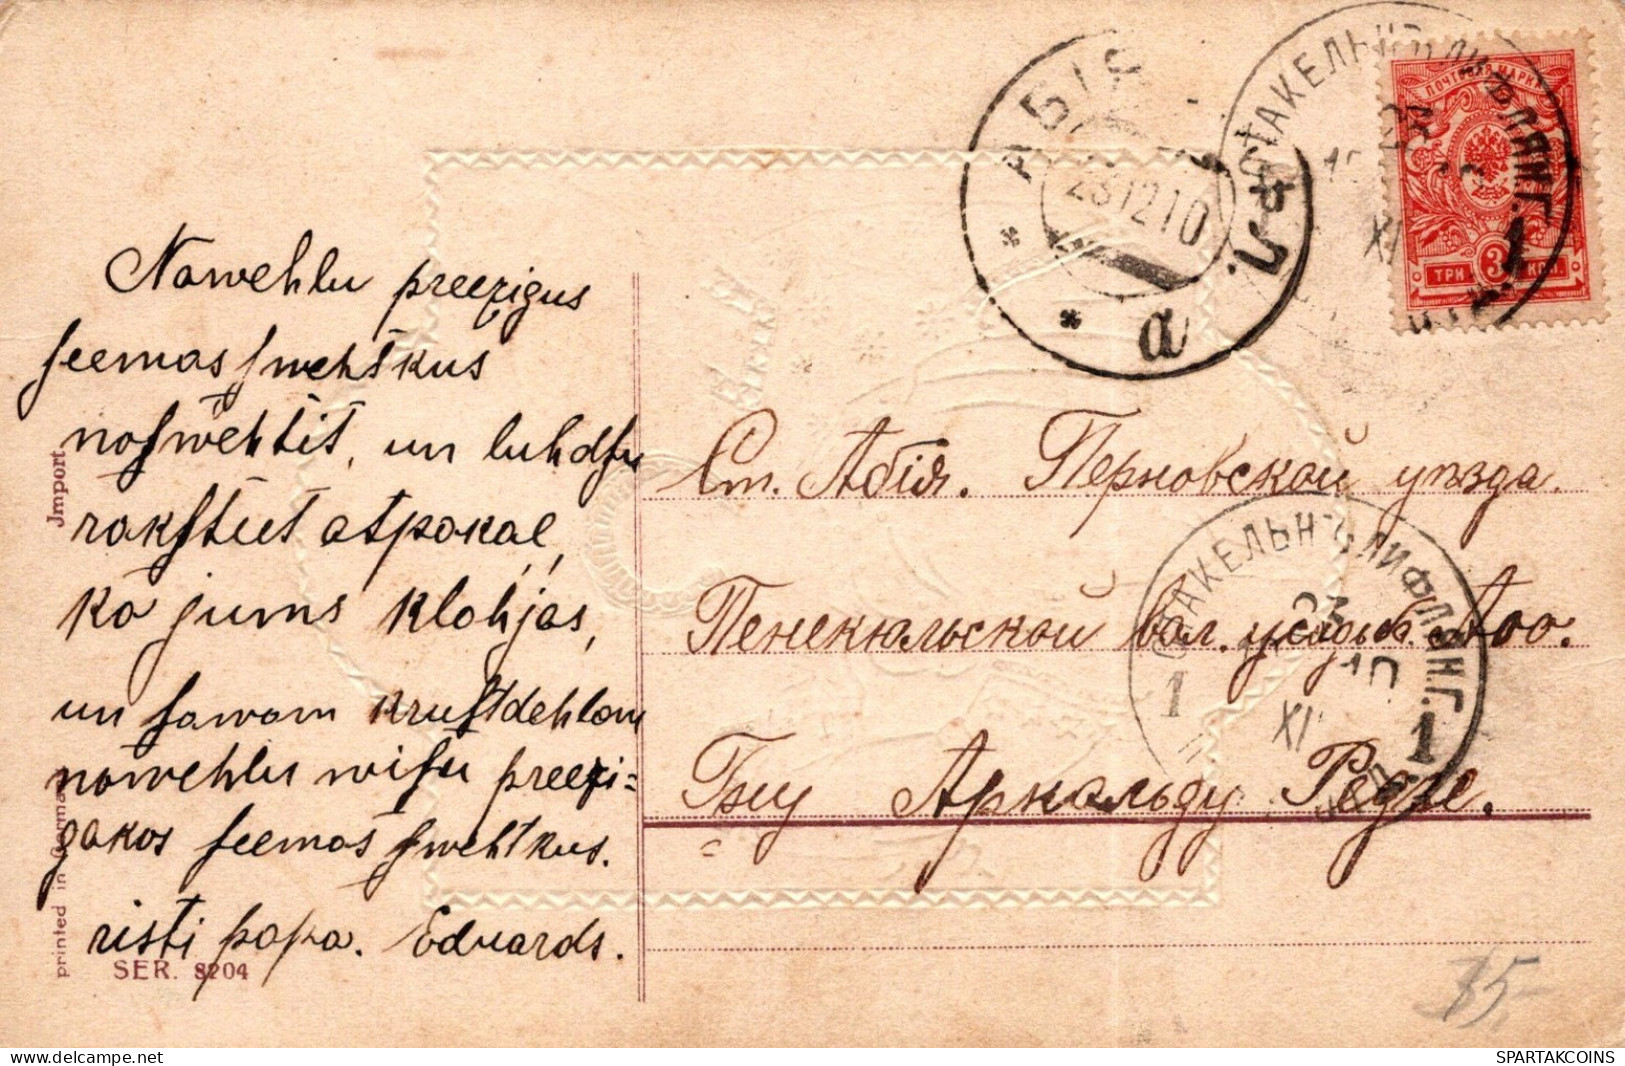 Nowehlu preezigus
seemas swehtkus
noswehtit, un luhdsu
rakstiet atpakaļ,
kā jums klahjas,
un sawam krustdehlam
nowehlu wisu preezi=
gakos seemas swehtkus.
risti papa. Eduards.
Jmport
printed in Germa
SER. 8204
АБІЯ
ЛИФЛ.
23 12 10
а
СТАКЕЛЬНЪ ЛИФЛЯНГ.
1
XI
ПОЧТОВАЯ МАРКА
ТРИ 3 КОП.
Ст. Абія. Перновской уѣзда.
Пенекюльской вол. усадьб. Аоо.
Гну Арнольду Реди.
СТАКЕЛЬНЪ ЛИФЛЯНГ.
23
10
XI
1 1
75-
SPARTAKCOINS